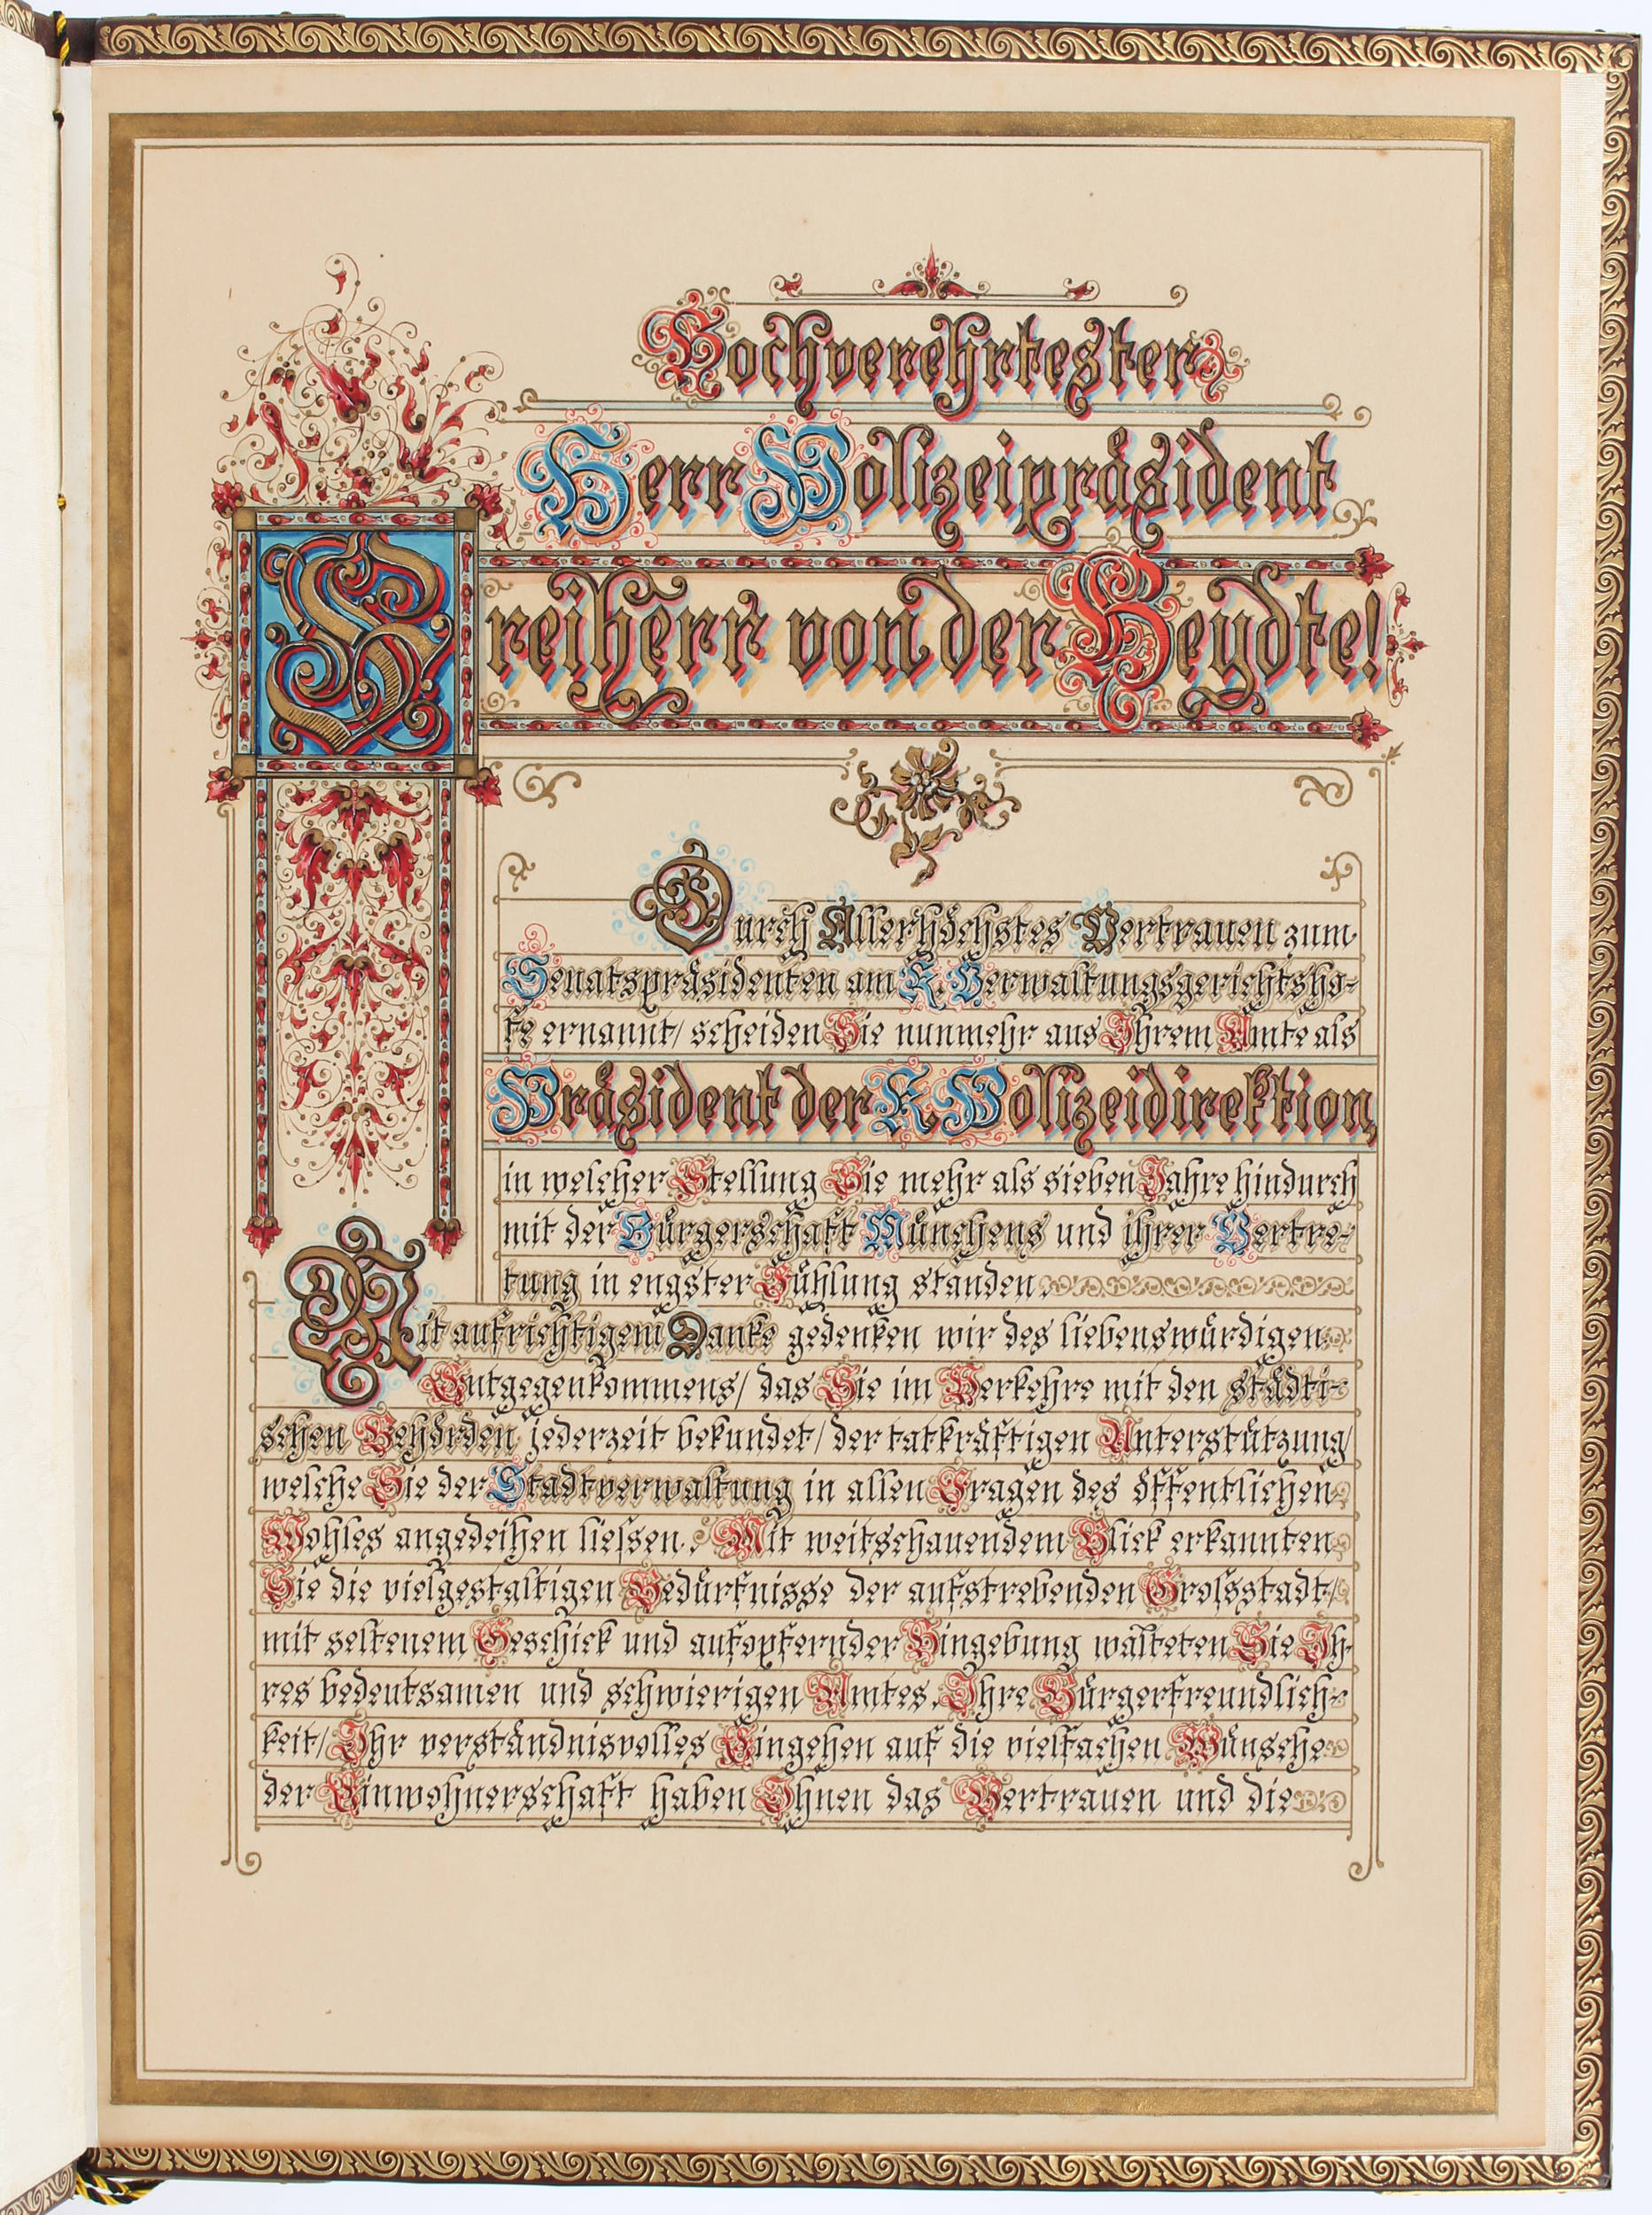 Hochverehrtester
Herr Polizeipräsident
Freiherr von der Heydte!
Durch Allerhöchstes Vertrauen zum
Senatspräsidenten am K. Verwaltungsgerichtsho-
fe ernannt/ scheiden Sie nunmehr aus Ihrem Amte als
Präsident der K. Polizeidirektion,
in welcher Stellung Sie mehr als sieben Jahre hindurch
mit der Bürgerschaft Münchens und ihrer Vertre-
tung in engster Fühlung standen.
Mit aufrichtigem Danke gedenken wir des liebenswürdigen
Entgegenkommens/ das Sie im Verkehre mit den städti-
schen Behörden jederzeit bekundet/ der tatkräftigen Unterstützung/
welche Sie der Stadtverwaltung in allen Fragen des öffentlichen
Wohles angedeihen liessen. Mit weitschauendem Blick erkannten
Sie die vielgestaltigen Bedürfnisse der aufstrebenden Grossstadt/
mit seltenem Geschick und aufopfernder Hingebung walteten Sie Ih-
res bedeutsamen und schwierigen Amtes. Ihre Bürgerfreundlich-
keit/ Ihr verständnisvolles Eingehen auf die vielfachen Wünsche
der Einwohnerschaft haben Ihnen das Vertrauen und die